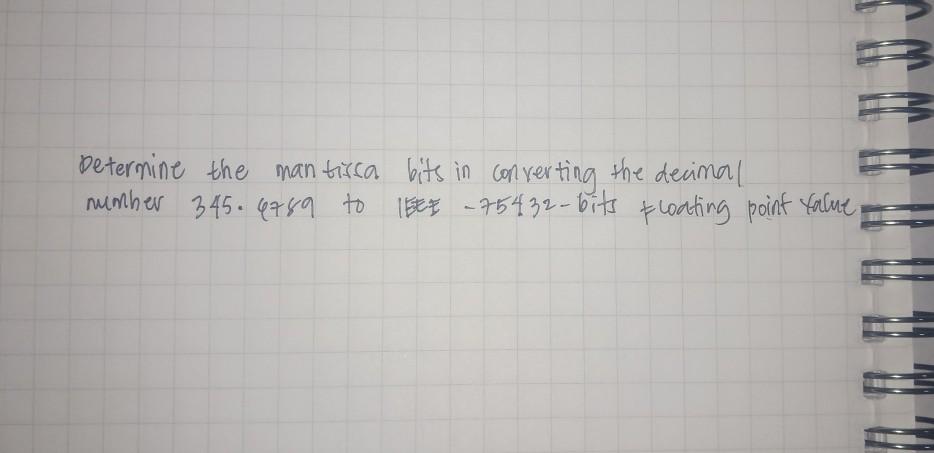 Determine the mantissa bits in converting the decimal
number 345.6789 to IEEE -75432-bits floating point value